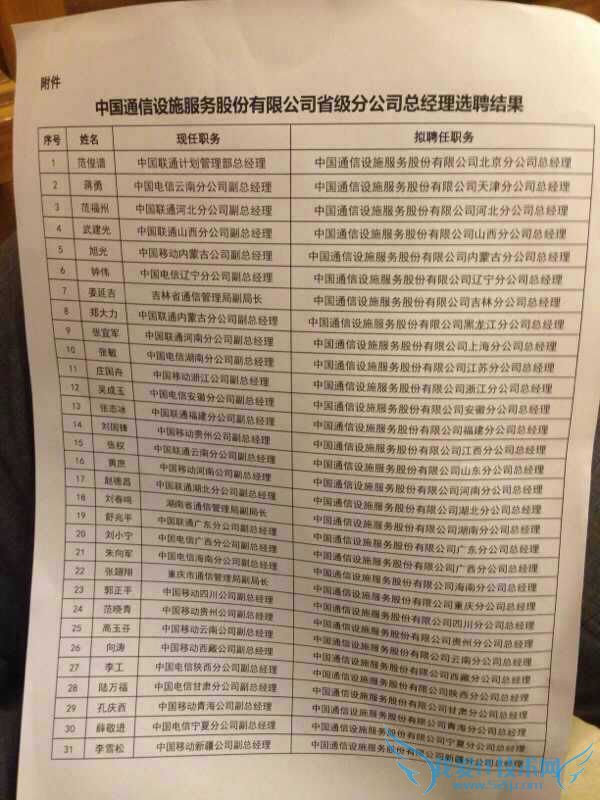 附件
中国通信设施服务股份有限公司省级分公司总经理选聘结果
序号 姓名 现任职务 拟聘任职务
1 范俊谱 中国联通计划管理部总经理 中国通信设施服务股份有限公司北京分公司总经理
2 蒋勇 中国电信云南分公司副总经理 中国通信设施服务股份有限公司天津分公司总经理
3 范福州 中国联通河北分公司副总经理 中国通信设施服务股份有限公司河北分公司总经理
4 武建光 中国联通山西分公司副总经理 中国通信设施服务股份有限公司山西分公司总经理
5 旭光 中国移动内蒙古公司副总经理 中国通信设施服务股份有限公司内蒙古分公司总经理
6 钟伟 中国电信辽宁分公司副总经理 中国通信设施服务股份有限公司辽宁分公司总经理
7 姜延吉 吉林省通信管理局副局长 中国通信设施服务股份有限公司吉林分公司总经理
8 郑大力 中国联通内蒙古分公司副总经理 中国通信设施服务股份有限公司黑龙江分公司总经理
9 张宜军 中国联通河南分公司副总经理 中国通信设施服务股份有限公司上海分公司总经理
10 张敏 中国电信湖南分公司副总经理 中国通信设施服务股份有限公司江苏分公司总经理
11 庄国舟 中国移动浙江公司副总经理 中国通信设施服务股份有限公司浙江分公司总经理
12 吴成玉 中国电信安徽分公司副总经理 中国通信设施服务股份有限公司安徽分公司总经理
13 张志冰 中国联通福建分公司副总经理 中国通信设施服务股份有限公司福建分公司总经理
14 刘国锋 中国移动贵州公司副总经理 中国通信设施服务股份有限公司江西分公司总经理
15 张权 中国联通云南分公司副总经理 中国通信设施服务股份有限公司山东分公司总经理
16 黄庶 中国移动河南公司副总经理 中国通信设施服务股份有限公司河南分公司总经理
17 赵德昌 中国联通湖北分公司副总经理 中国通信设施服务股份有限公司湖北分公司总经理
18 刘春鸣 湖南省通信管理局副局长 中国通信设施服务股份有限公司湖南分公司总经理
19 舒兆平 中国联通广东分公司副总经理 中国通信设施服务股份有限公司广东分公司总经理
20 刘小宁 中国电信广西分公司副总经理 中国通信设施服务股份有限公司广西分公司总经理
21 朱向军 中国电信海南分公司副总经理 中国通信设施服务股份有限公司海南分公司总经理
22 张翊翔 重庆市通信管理局副局长 中国通信设施服务股份有限公司重庆分公司总经理
23 郭正平 中国移动四川公司副总经理 中国通信设施服务股份有限公司四川分公司总经理
24 范晓青 中国移动贵州公司副总经理 中国通信设施服务股份有限公司贵州分公司总经理
25 高玉芬 中国移动云南公司副总经理 中国通信设施服务股份有限公司云南分公司总经理
26 向涛 中国移动西藏公司副总经理 中国通信设施服务股份有限公司西藏分公司总经理
27 李工 中国电信陕西分公司副总经理 中国通信设施服务股份有限公司陕西分公司总经理
28 陆万福 中国电信甘肃分公司副总经理 中国通信设施服务股份有限公司甘肃分公司总经理
29 孔庆西 中国移动青海公司副总经理 中国通信设施服务股份有限公司青海分公司总经理
30 薛敬进 中国电信宁夏分公司副总经理 中国通信设施服务股份有限公司宁夏分公司总经理
31 李雪松 中国移动新疆公司副总经理 中国通信设施服务股份有限公司新疆分公司总经理